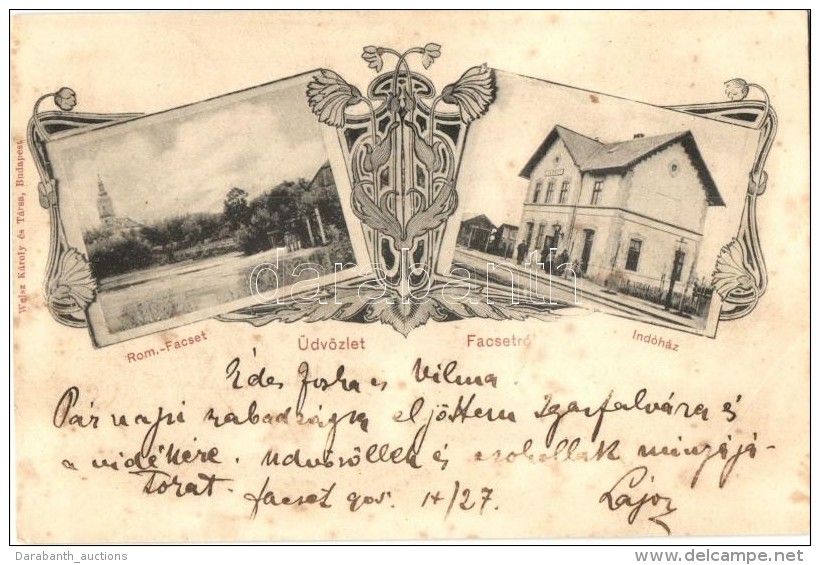 Weisz Károly és Társa, Budapest
darabanth
Rom.-Facset
Üdvözlet Facsetről
Indóház
Édes Joska es Vilma
Pár napi szabadságra eljöttem Igasfalvára és
a vidékére. Üdvözöllek és csokollak mingája-
torat. Facset 1/27.
Lajos
Darabanth_auctions
www.delcampe.net